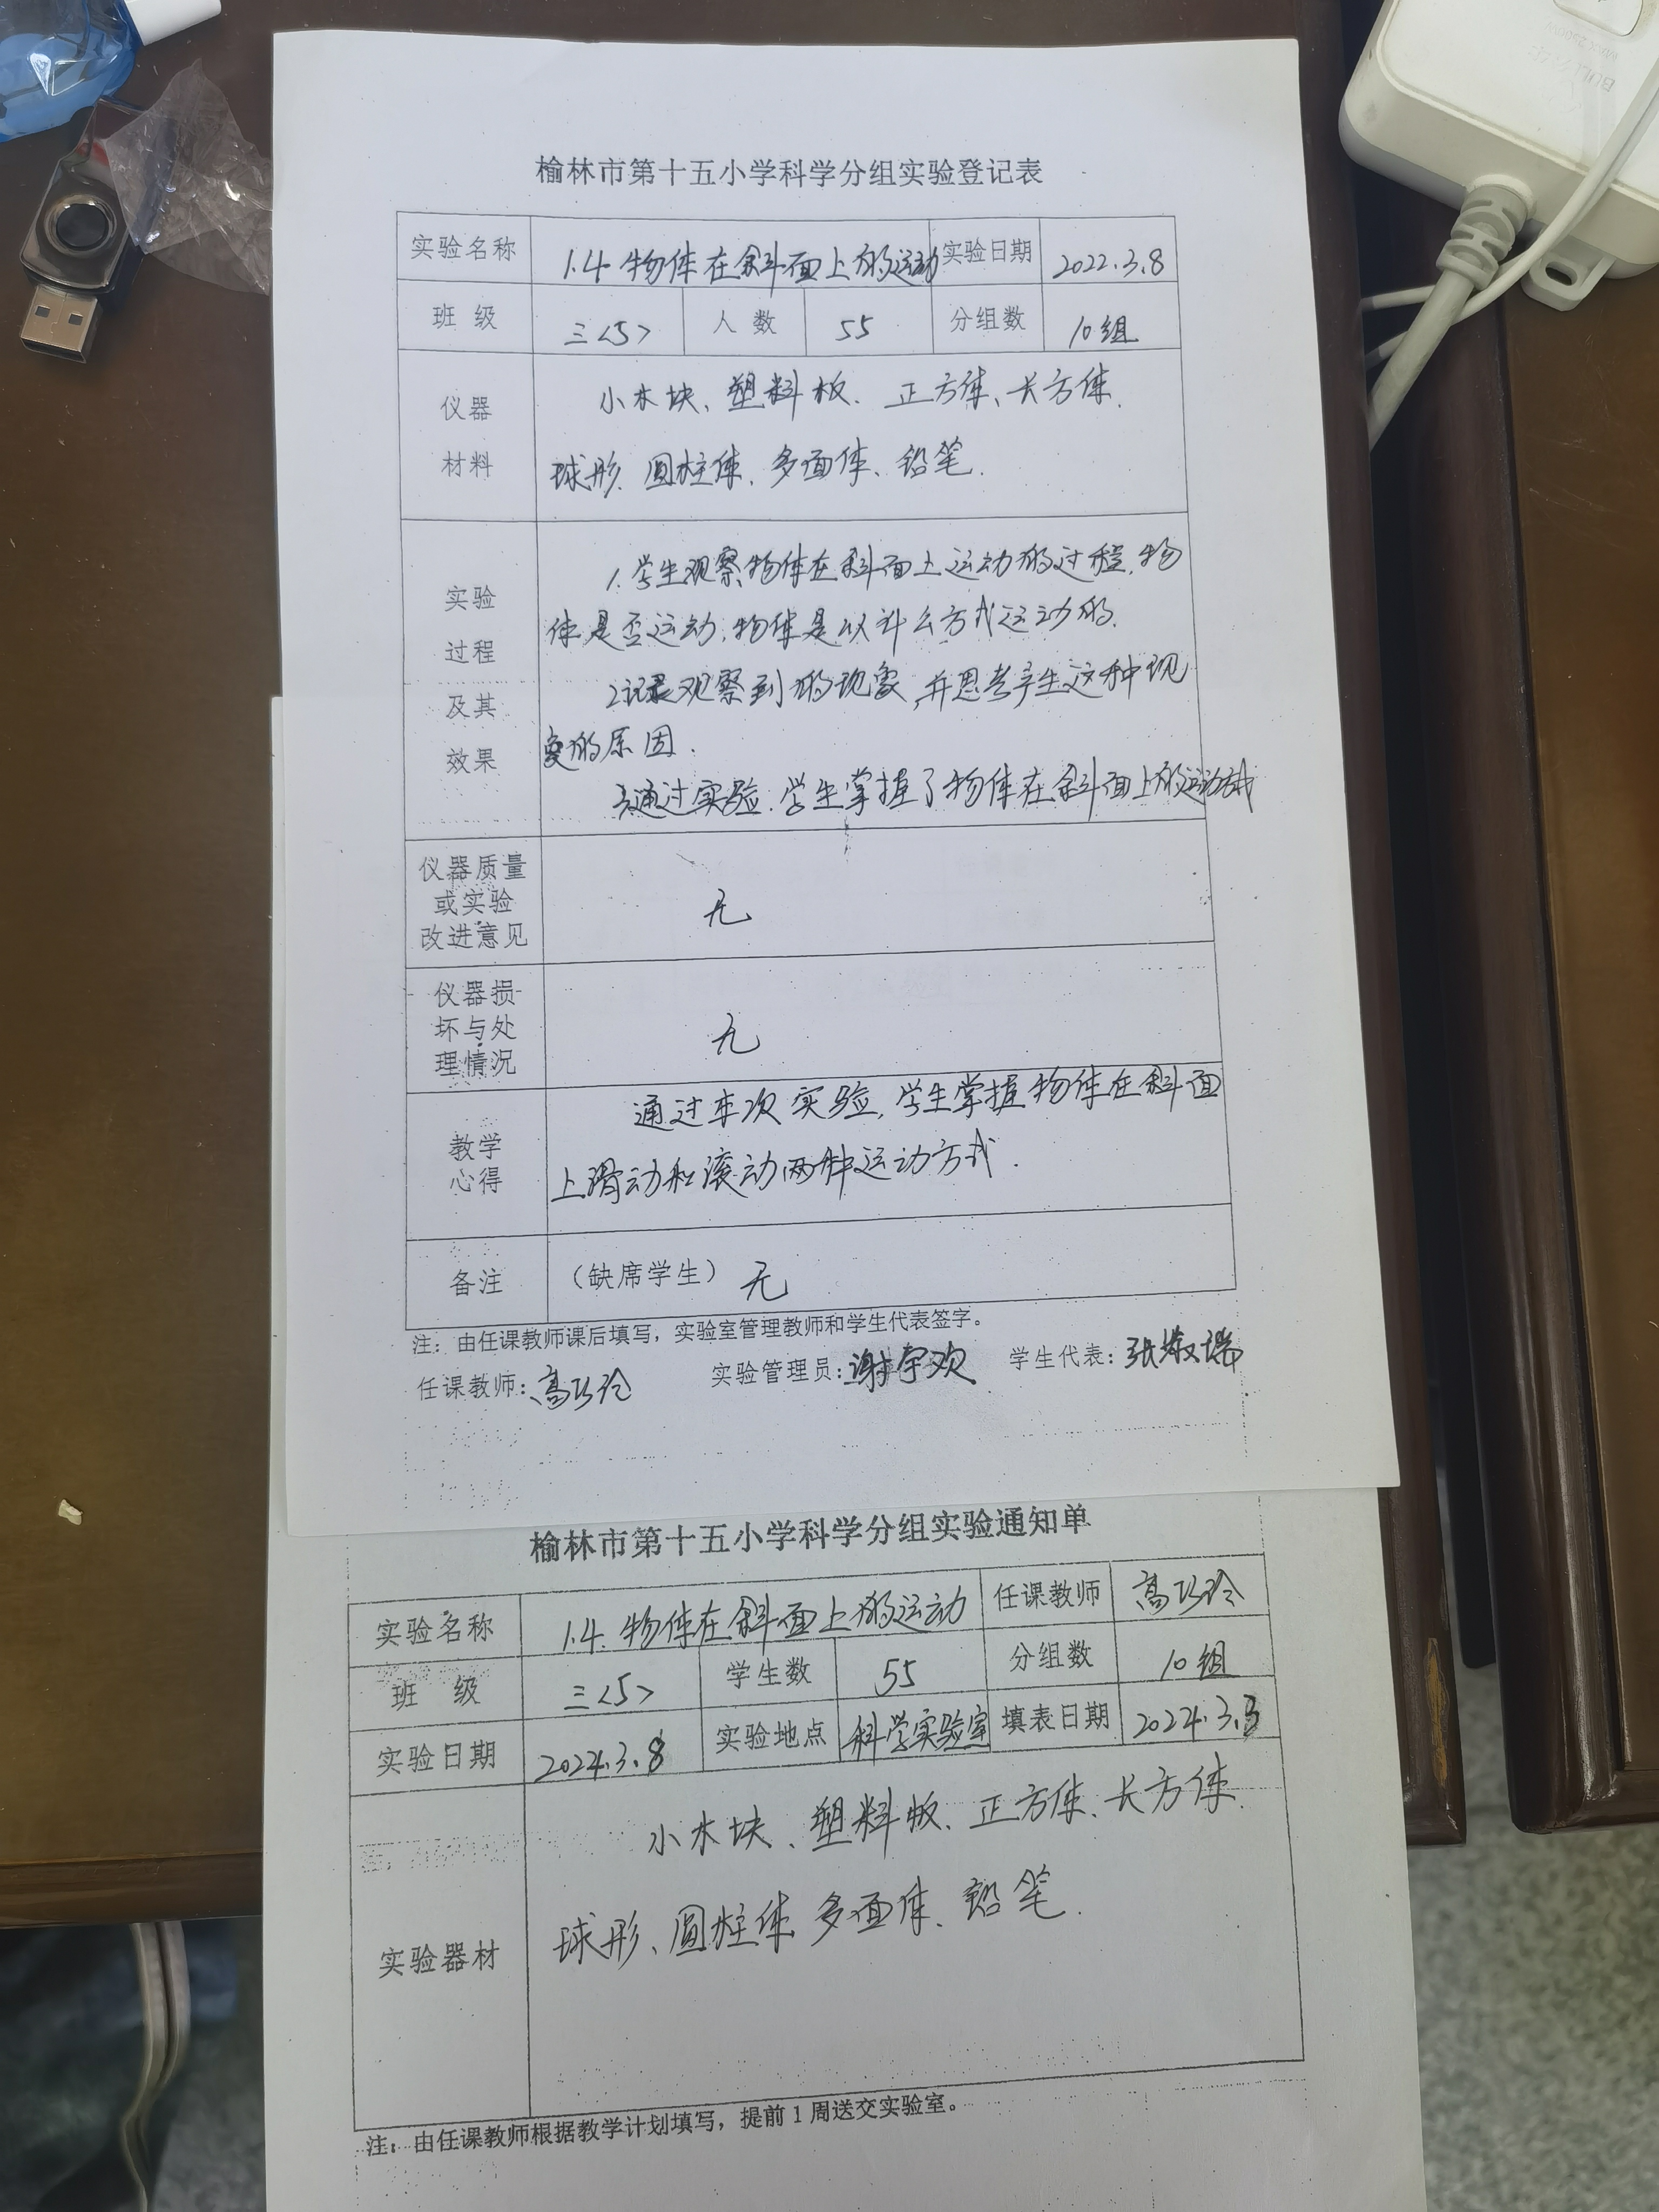 榆林市第十五小学科学分组实验登记表
实验名称 1.4 物体在斜面上的运动 实验日期 2022.3.8
班 级 三<5> 人 数 55 分组数 10组
仪器 小木块、塑料板、正方体、长方体、
材料 球形、圆柱体、多面体、铅笔.
1.学生观察物体在斜面上运动的过程,物
实验 体是否运动,物体是以什么方式运动的.
过程
及其 2.记录观察到的现象,并思考产生这种现
效果 象的原因.
3.通过实验.学生掌握了物体在斜面上的运动方式
仪器质量
或实验 无
改进意见
仪器损
坏与处 无
理情况
通过本次实验,学生掌握物体在斜面
教学
心得 上滑动和滚动两种运动方式.
备注 （缺席学生） 无
注：由任课教师课后填写，实验室管理教师和学生代表签字。
任课教师：高巧玲 实验管理员：谢宇欢 学生代表：张
榆林市第十五小学科学分组实验通知单
实验名称 1.4.物体在斜面上的运动 任课教师 高巧玲
班 级 三<5> 学生数 55 分组数 10组
实验日期 2022.3.8 实验地点 科学实验室 填表日期 2022.3.3
小木块、塑料板、正方体、长方体.
实验器材 球形、圆柱体、多面体、铅笔.
注：由任课教师根据教学计划填写，提前1周送交实验室。